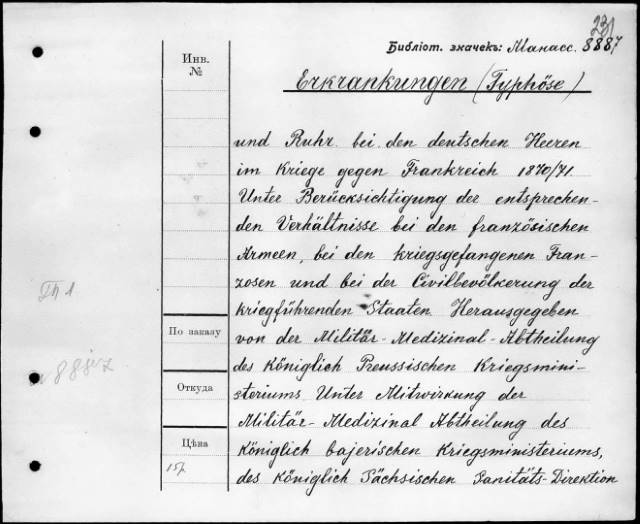 23/
Библіот. значекъ: Манасс. 8887
Инв. №
Erkrankungen (Typhöse)
und Ruhr bei den deutschen Heeren
im Kriege gegen Frankreich 1870/71.
Unter Berücksichtigung der entsprechen-
den Verhältnisse bei den französischen
Armeen, bei den kriegsgefangenen Fran-
zosen und bei der Civilbevölkerung der
kriegführenden Staaten Herausgegeben
von der Militär-Medizinal-Abtheilung
des Königlich Preussischen Kriegsmini-
steriums Unter Mitwirkung der
Militär-Medizinal Abtheilung des
Königlich bajerischen Kriegsministeriums,
des Königlich Sächsischen Sanitäts-Direktion
По заказу
Откуда
Цѣна